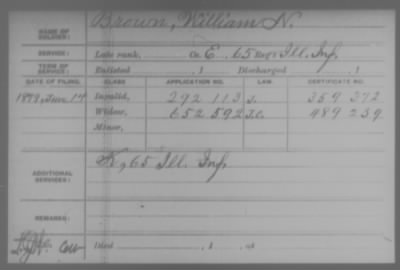 NAME OF SOLDIER: Brown, William N.
SERVICE: Late rank, Co. E, 65 Reg't Ill. Inf.
TERM OF SERVICE: Enlisted , 1 Discharged , 1
DATE OF FILING. CLASS. APPLICATION NO. LAW. CERTIFICATE NO.
Invalid, 292 113 359 372
Widow, 652 592 489 239
Minor,
ADDITIONAL SERVICES: 65 Ill. Inf.
REMARKS:
Died , 1 , at